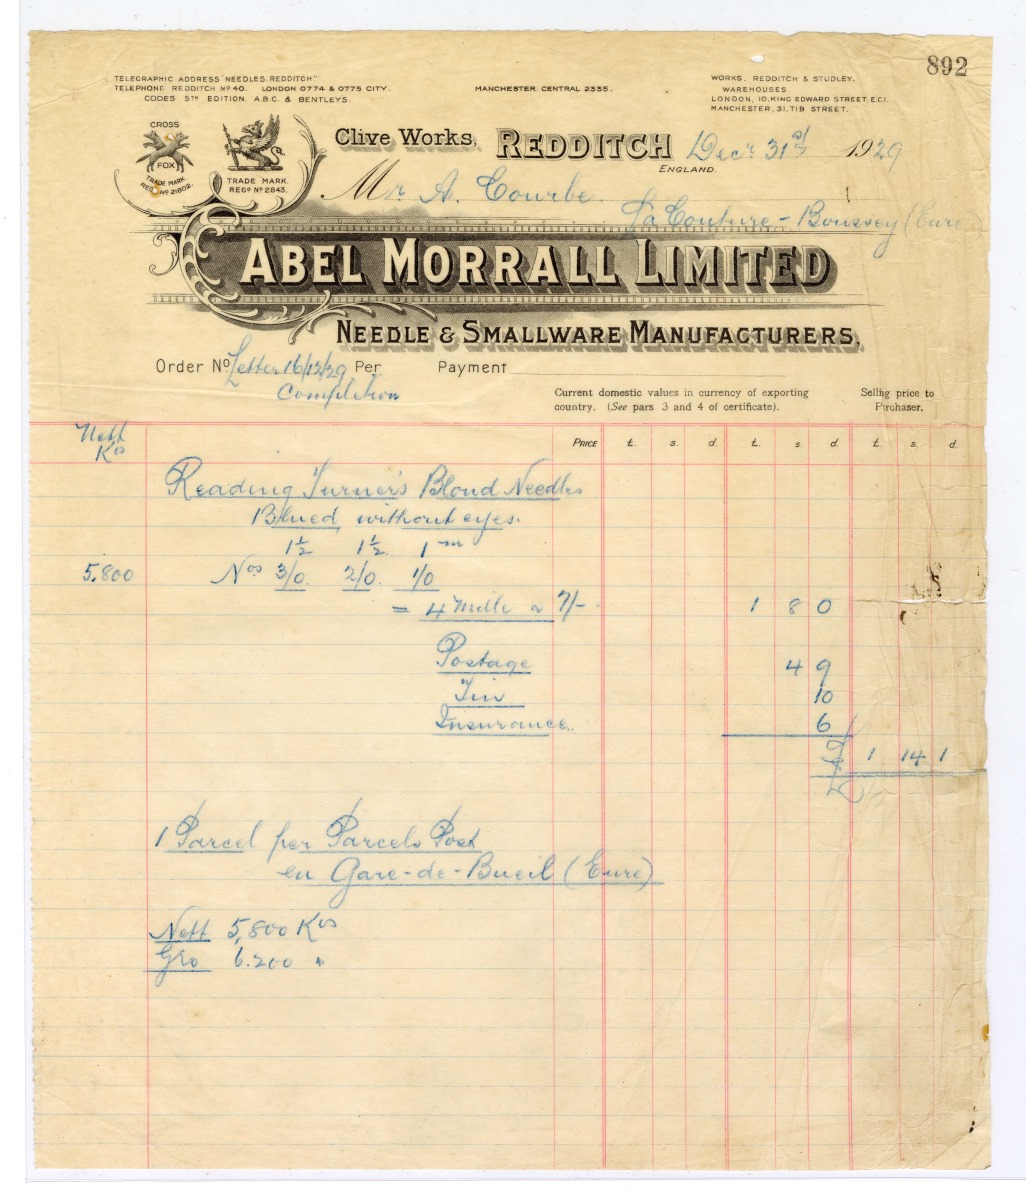 892
TELEGRAPHIC ADDRESS "NEEDLES. REDDITCH"
TELEPHONE REDDITCH Nº 40. LONDON 0774 & 0775 CITY. MANCHESTER CENTRAL 2335.
CODES 5TH EDITION. A.B.C. & BENTLEYS.
WORKS, REDDITCH & STUDLEY.
WAREHOUSES
LONDON, 10, KING EDWARD STREET, E.C.1.
MANCHESTER, 31, TIB STREET.
CROSS
FOX
TRADE MARK.
REGD Nº 21802.
TRADE MARK
REGD Nº 2843.
Clive Works, REDDITCH Decr 31st 1929
ENGLAND.
Mr A. Courbe.
La Couture-Boussey (Eure)
ABEL MORRALL LIMITED
NEEDLE & SMALLWARE MANUFACTURERS.
Order Nº Letter 16/12/29 Per Payment
Completion
Current domestic values in currency of exporting country. (See pars 3 and 4 of certificate).
Selling price to Purchaser.
Nett
Kos
PRICE £. s. d. £. s. d. £. s. d.
Reading Turner's Blond Needles
Blued, without eyes.
1½ 1½ 1 m
5,800 Nos 3/0. 2/0. 1/0
= 4 Mille a 7/- 1 8 0
Postage 4 9
Tin 10
Insurance. 6
£ 1 14 1
1 Parcel per Parcels Post
en Gare-de-Bueil (Eure)
Nett 5,800 Kos
Gro 6.200 "